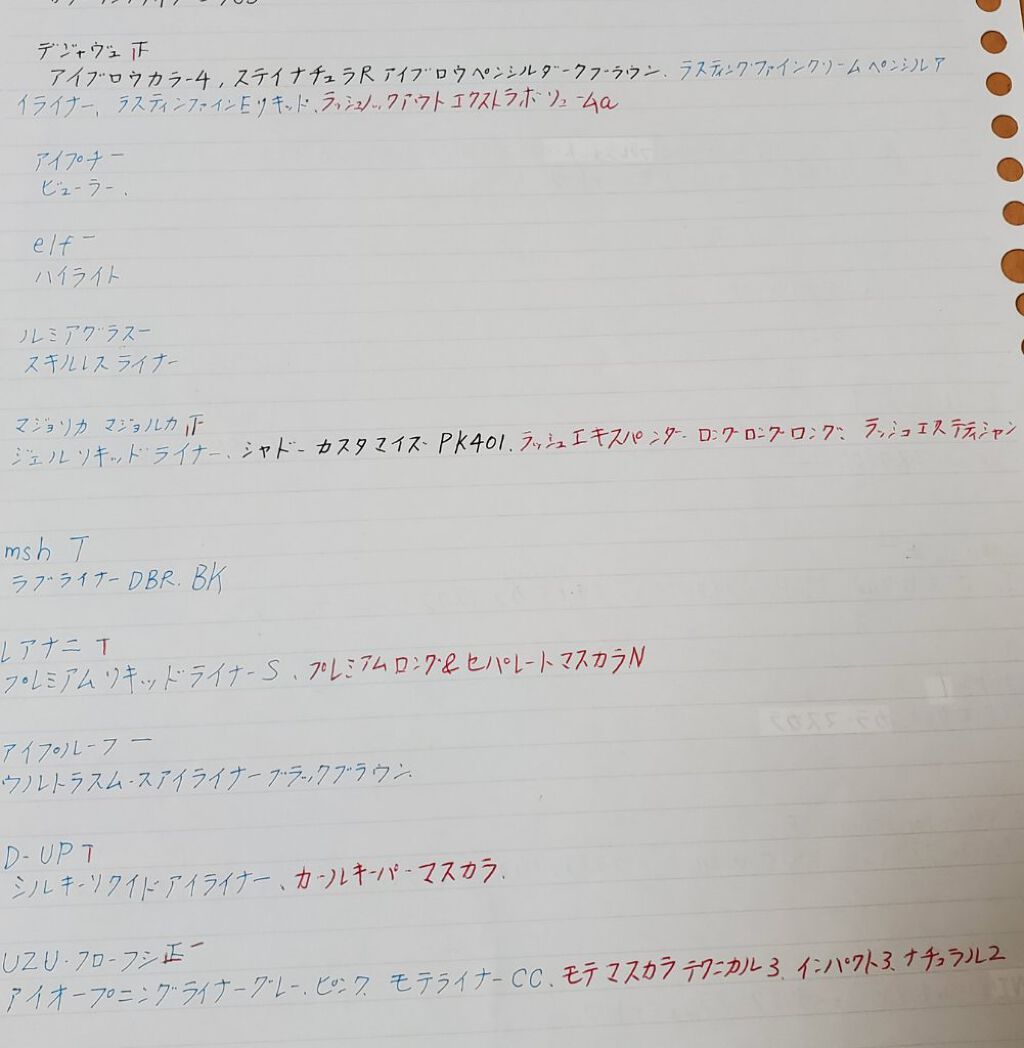 デジャヴュ 正
アイブロウカラー4, ステイナチュラR アイブロウペンシルダークブラウン、ラスティングファインクリームペンシルア
イライナー、ラスティンファインEリキッド、ラッシュノックアウト エクストラボリュームa
アイプチ 一
ビューラー、
elf 一
ハイライト
ルミアグラス一
スキルレスライナー
マジョリカ マジョルカ 正
ジェルリキッドライナー、シャドーカスタマイズ PK401、ラッシュエキスパンダー ロングロングロング、ラッシュエステティシャン
msh T
ラブライナー DBR. BK
レアナニ T
プレミアムリキッドライナーS、プレミアムロング&セパレートマスカラN
アイプルーフ 一
ウルトラスムースアイライナーブラックブラウン.
D-UP T
シルキーリクイドアイライナー、カールキーパーマスカラ.
UZU・フローフシ正一
アイオープニングライナーグレー、ピンク、モテライナーCC、モテマスカラ テクニカル3、インパクト3、ナチュラル2
カラーマスカラ